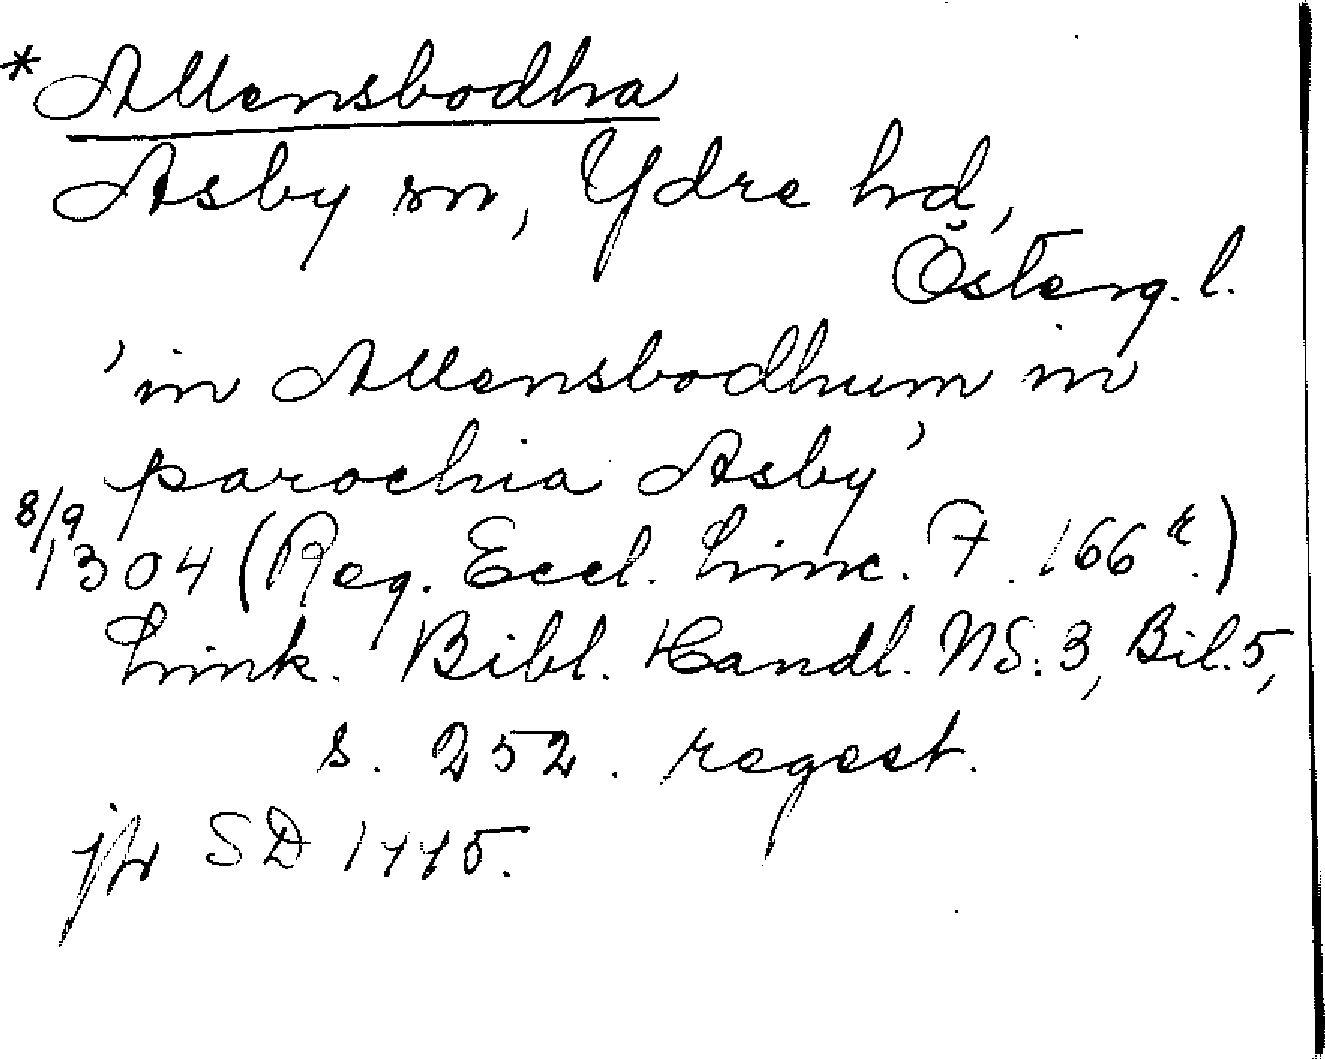 *Allensbodha
Asby sn, Ydre hd,
Österg. l.
'in Allensbodhum in
parochia Asby'
8/9
1304 (Reg. Eccl. Linc. F. 166 r.)
Link. Bibl. Handl. NS. 3, Bil. 5,
s. 252. regest.
jfr SD 1445.